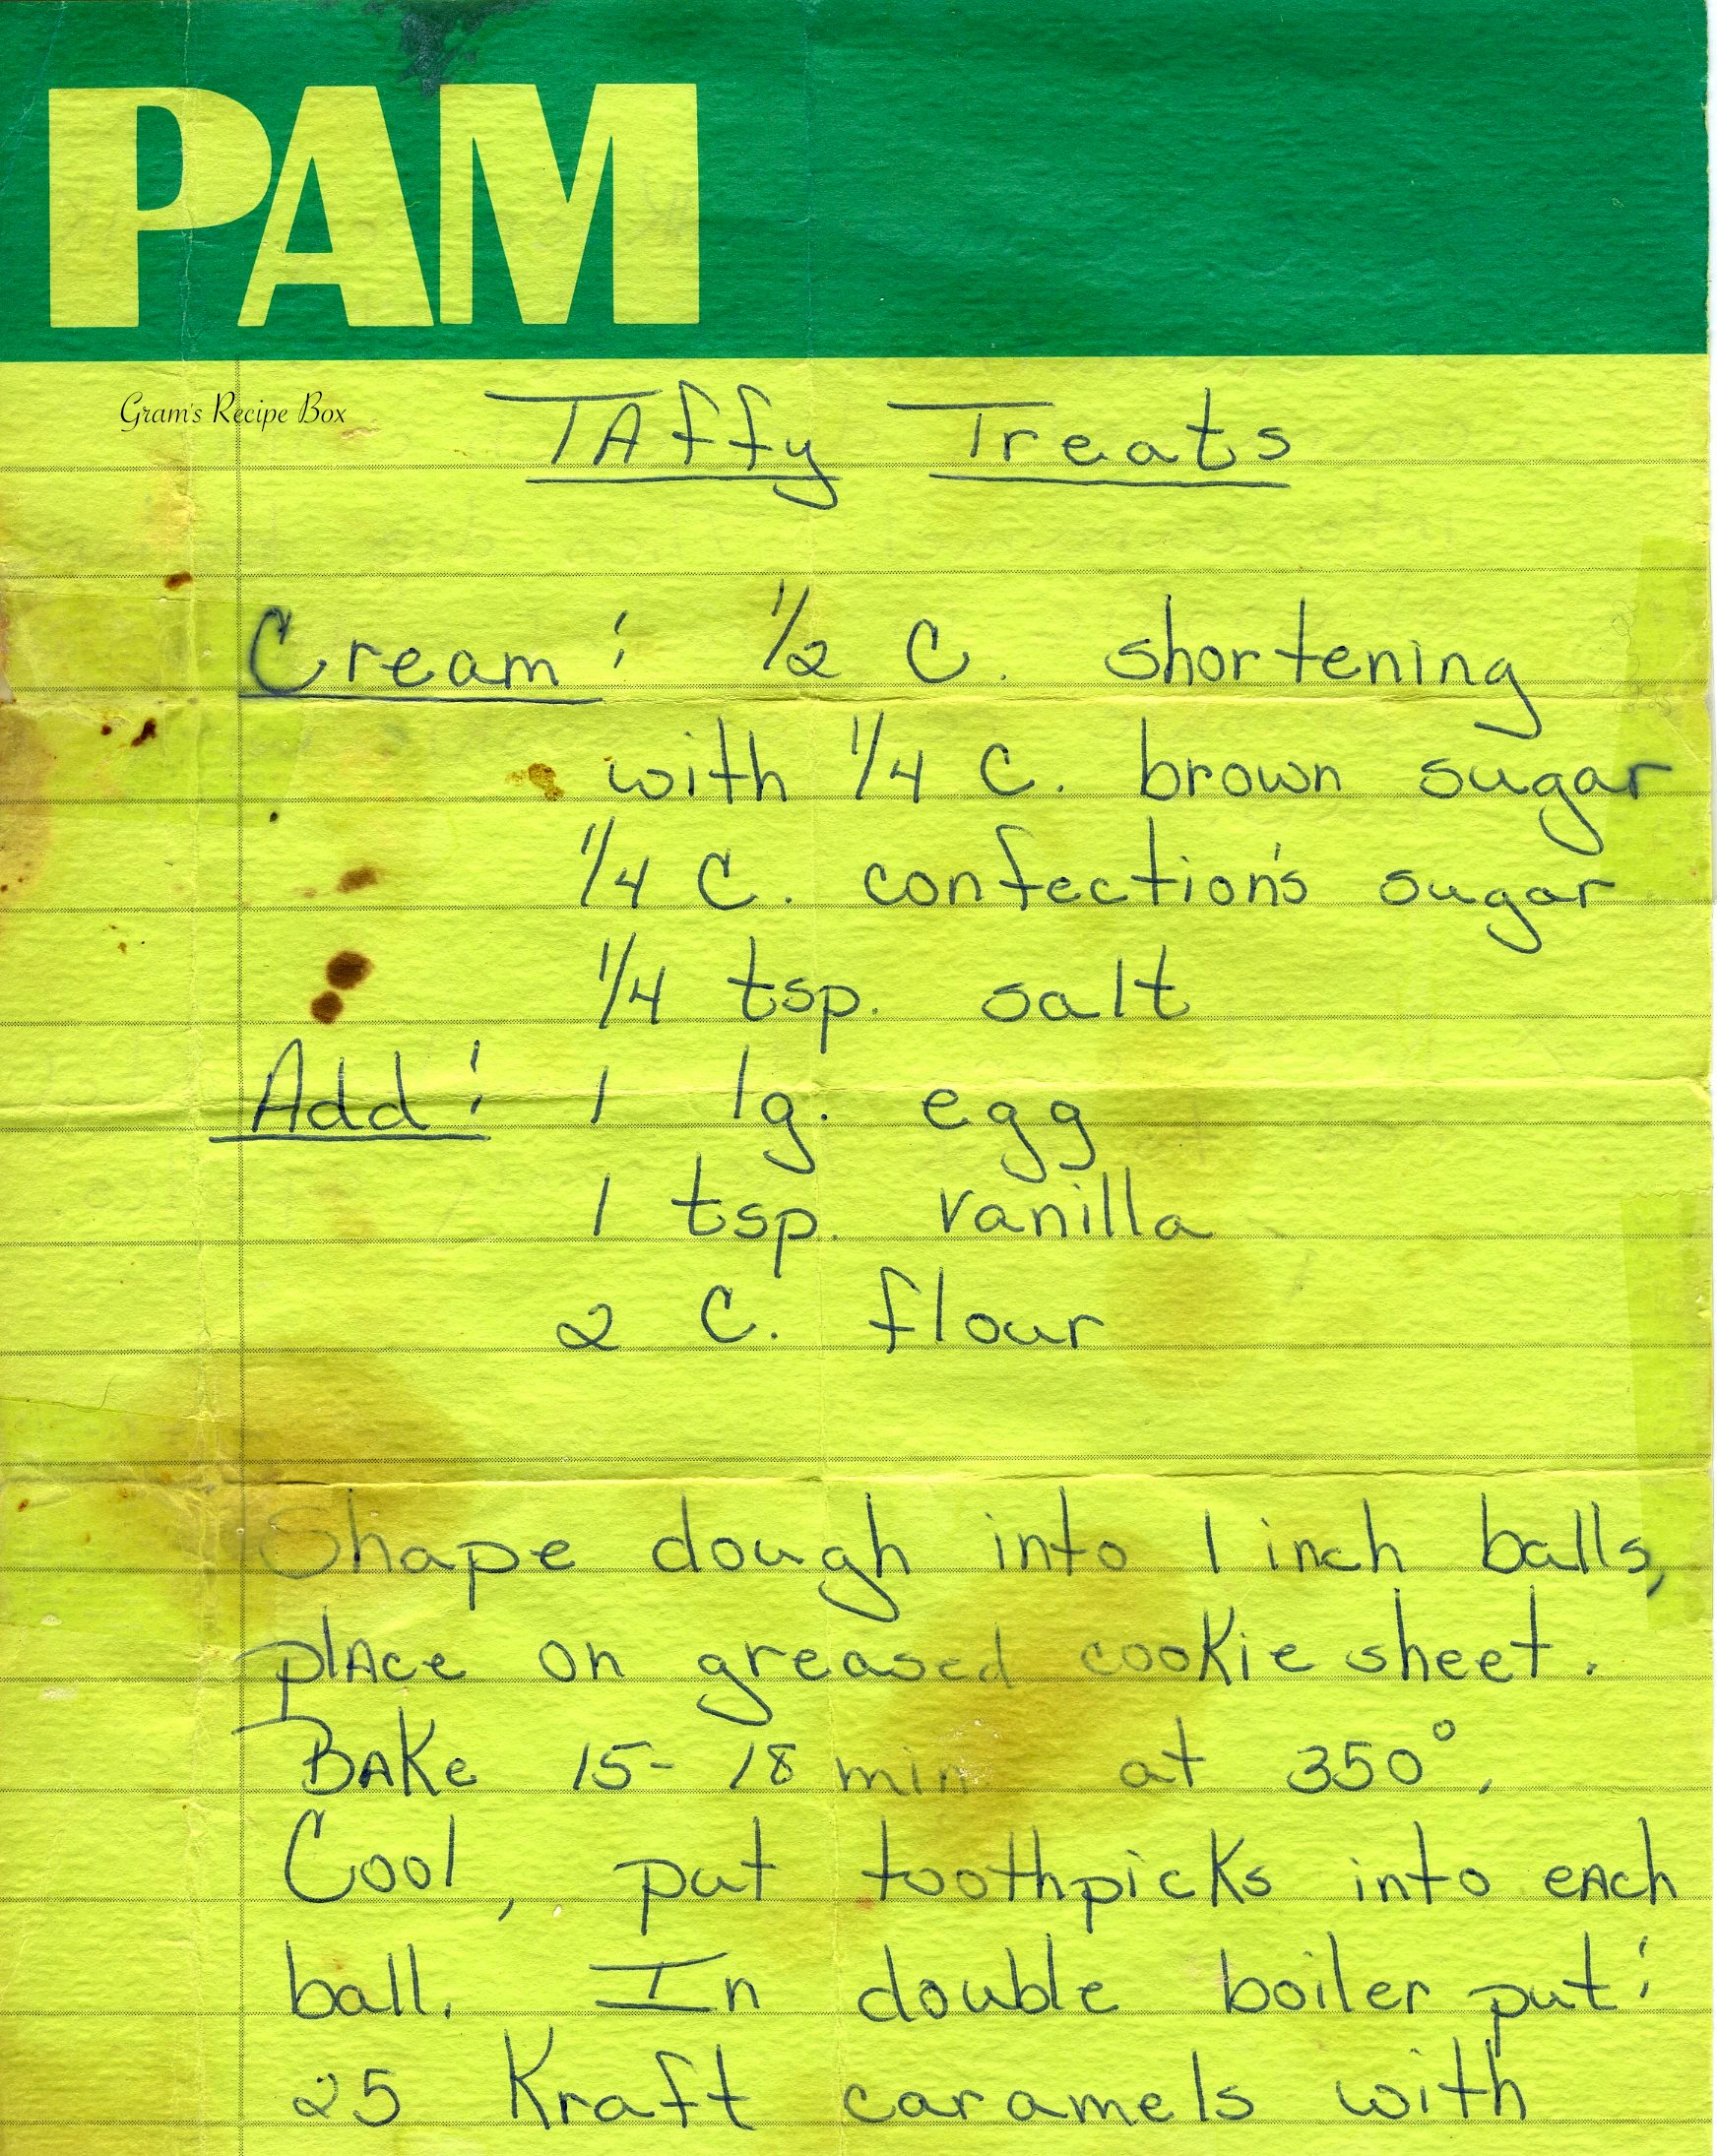 PAM
Gram's Recipe Box
TAffy Treats
Cream: 1/2 C. shortening
with 1/4 C. brown sugar
1/4 C. confection's sugar
1/4 tsp. salt
Add: 1 lg. egg
1 tsp. vanilla
2 C. flour
Shape dough into 1 inch balls,
plAce on greased cookie sheet.
BAKe 15-18 min at 350°.
Cool, put toothpicks into eAch
ball. In double boiler put:
25 Kraft caramels with